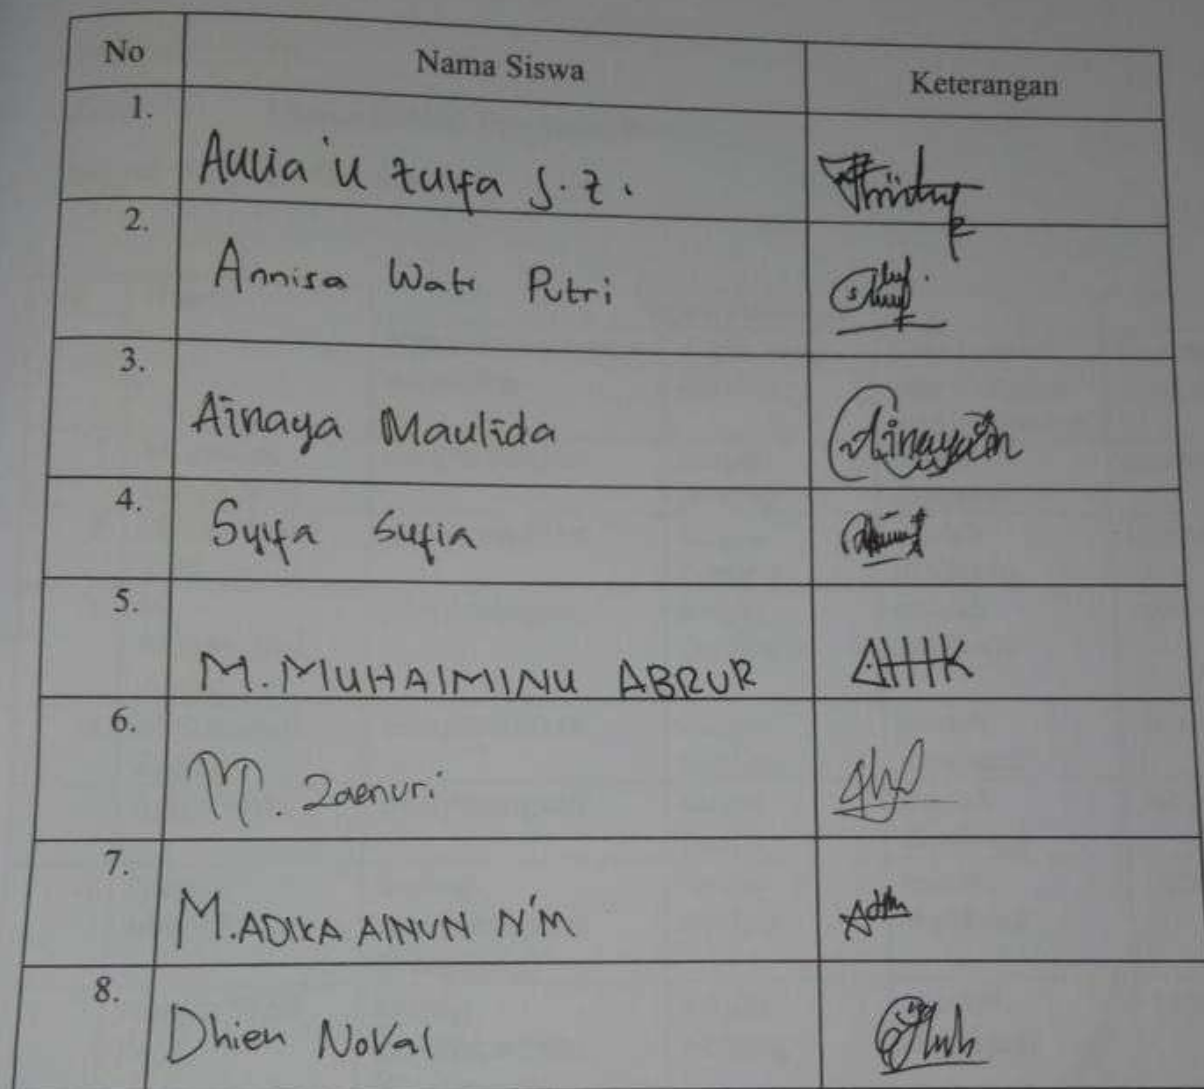 No Nama Siswa Keterangan
1. Aulia 'u zulfa S. Z.
2. Annisa Wati Putri
3. Ainaya Maulida
4. Syifa Sufia
5. M. MUHAIMINU ABRUR
6. M. Zaenuri
7. M. ADIKA AINUN N'M
8. Dhien Noval